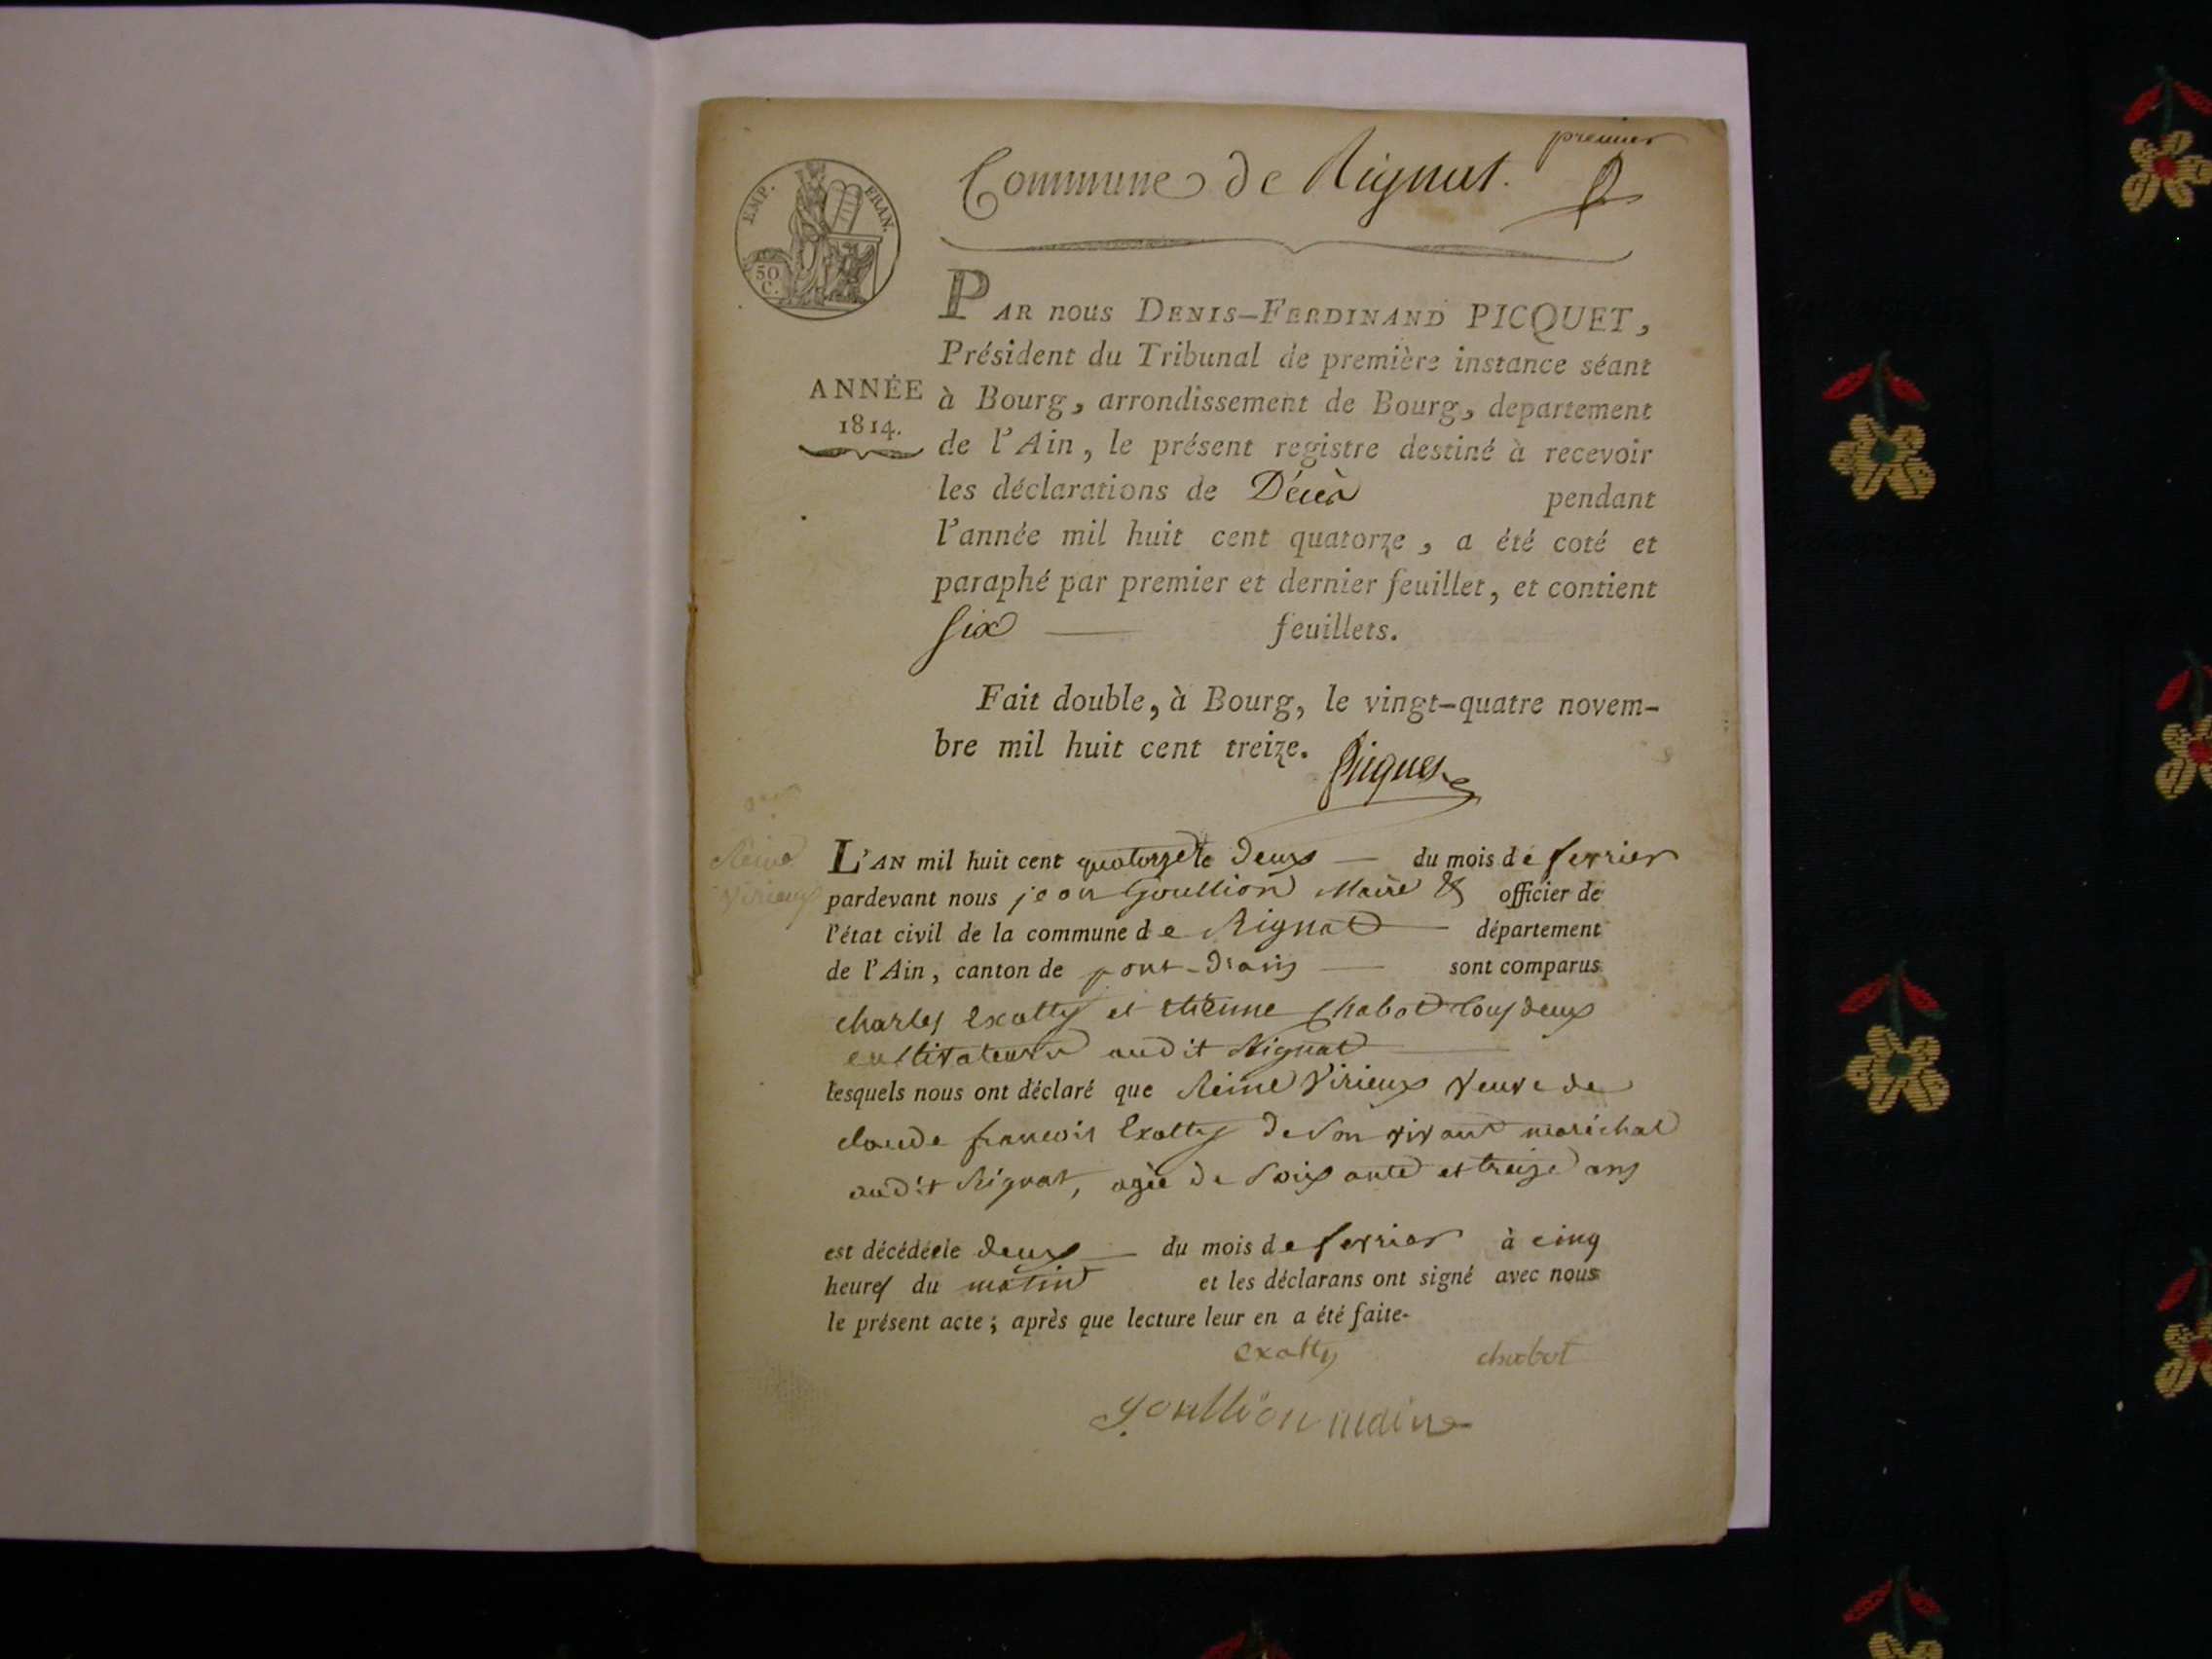 premier
Commune de Rignat.
EMP. FRAN.
50
C.
PAR nous DENIS-FERDINAND PICQUET,
Président du Tribunal de première instance séant
ANNÉE
1814.
à Bourg, arrondissement de Bourg, departement
de l'Ain, le présent registre destiné à recevoir
les déclarations de Décès pendant
l'année mil huit cent quatorze, a été coté et
paraphé par premier et dernier feuillet, et contient
six feuillets.
Fait double, à Bourg, le vingt-quatre novem-
bre mil huit cent treize.
Reine
Virieux
L'AN mil huit cent quatorze le deux du mois de fevrier
pardevant nous jean Goullion Maire & officier de
l'état civil de la commune de Rignat département
de l'Ain, canton de pont-d'ain sont comparus
charles Exatty et etienne Chabot tous deux
cultivateurs audit Rignat
lesquels nous ont déclaré que Reine Virieux veuve de
claude francois Exatty de son vivant maréchal
audit Rignat, agée de soixante et treize ans
est décédée le deux du mois de fevrier à cinq
heures du matin et les déclarans ont signé avec nous
le présent acte; après que lecture leur en a été faite.
exatty chabot
goullion maire